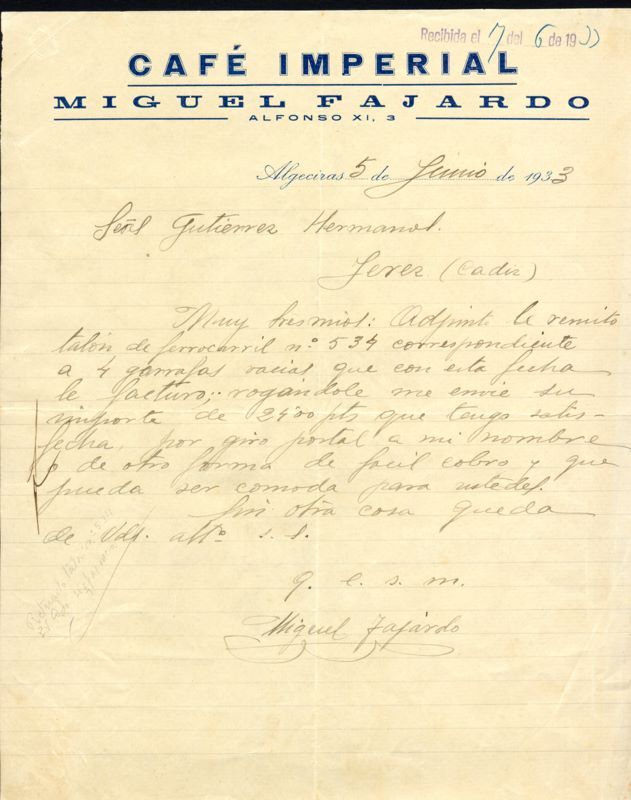 Recibida el 7 del 6 de 1933
CAFÉ IMPERIAL
MIGUEL FAJARDO
ALFONSO XI, 3
Algeciras 5 de Junio de 1933
Señs Gutierrez Hermanos.
Jerez (Cadiz)
Muy Sres mios: Adjunto le remito
talón de ferrocarril nº 534 correspondiente
a 4 garrafas vacias que con esta fecha
le facturo; rogándole me envie su
importe de 24'00 pts que tengo satis-
fecha, por giro postal a mi nombre
o de otra forma de facil cobro y que
pueda ser comoda para ustedes.
Sin otra cosa queda
de Vds. attº s. s.
q. e. s. m.
Miguel Fajardo